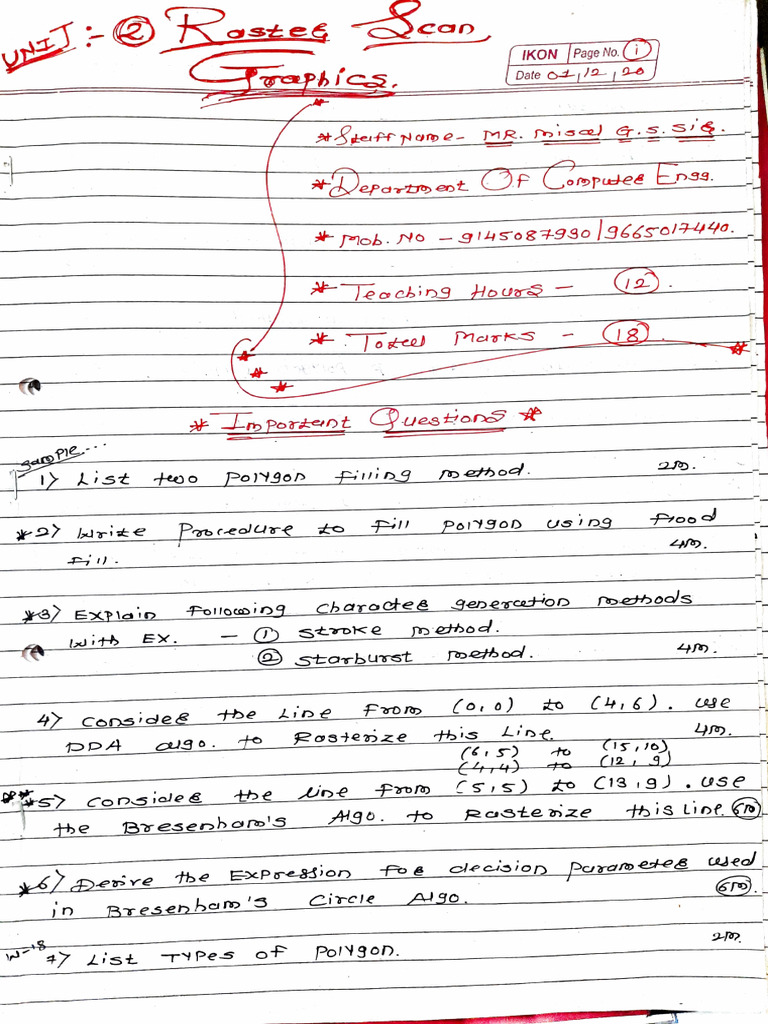 UNIT :- ② Raster Scan
Graphics.
IKON Page No. ①
Date 01/12/20
* Staff Name - MR. Misal G. S. Sir.
* Department Of Computer Engg.
* Mob. No - 9145087990/9665017440.
* Teaching Hours - ⑫.
* Total Marks - ⑱.
* Important Questions *
Sample...
1) List two polygon filling method. 2m.
*2) Write Procedure to fill polygon using flood
fill. 4m.
*3) Explain following character generation methods
with Ex. - ① stroke method.
② starburst method. 4m.
4) Consider the Line from (0,0) to (4,6). use
DDA algo. to Rasterize this Line. 4m.
(6,5) to (15,10)
(4,4) to (12,9)
***5) Consider the line from (5,5) to (13,9). use
the Bresenham's Algo. to Rasterize this Line. 6m
*6) Derive the Expression for decision parameter used
in Bresenham's Circle Algo. 6m.
W-18
7) List Types of Polygon. 2m.